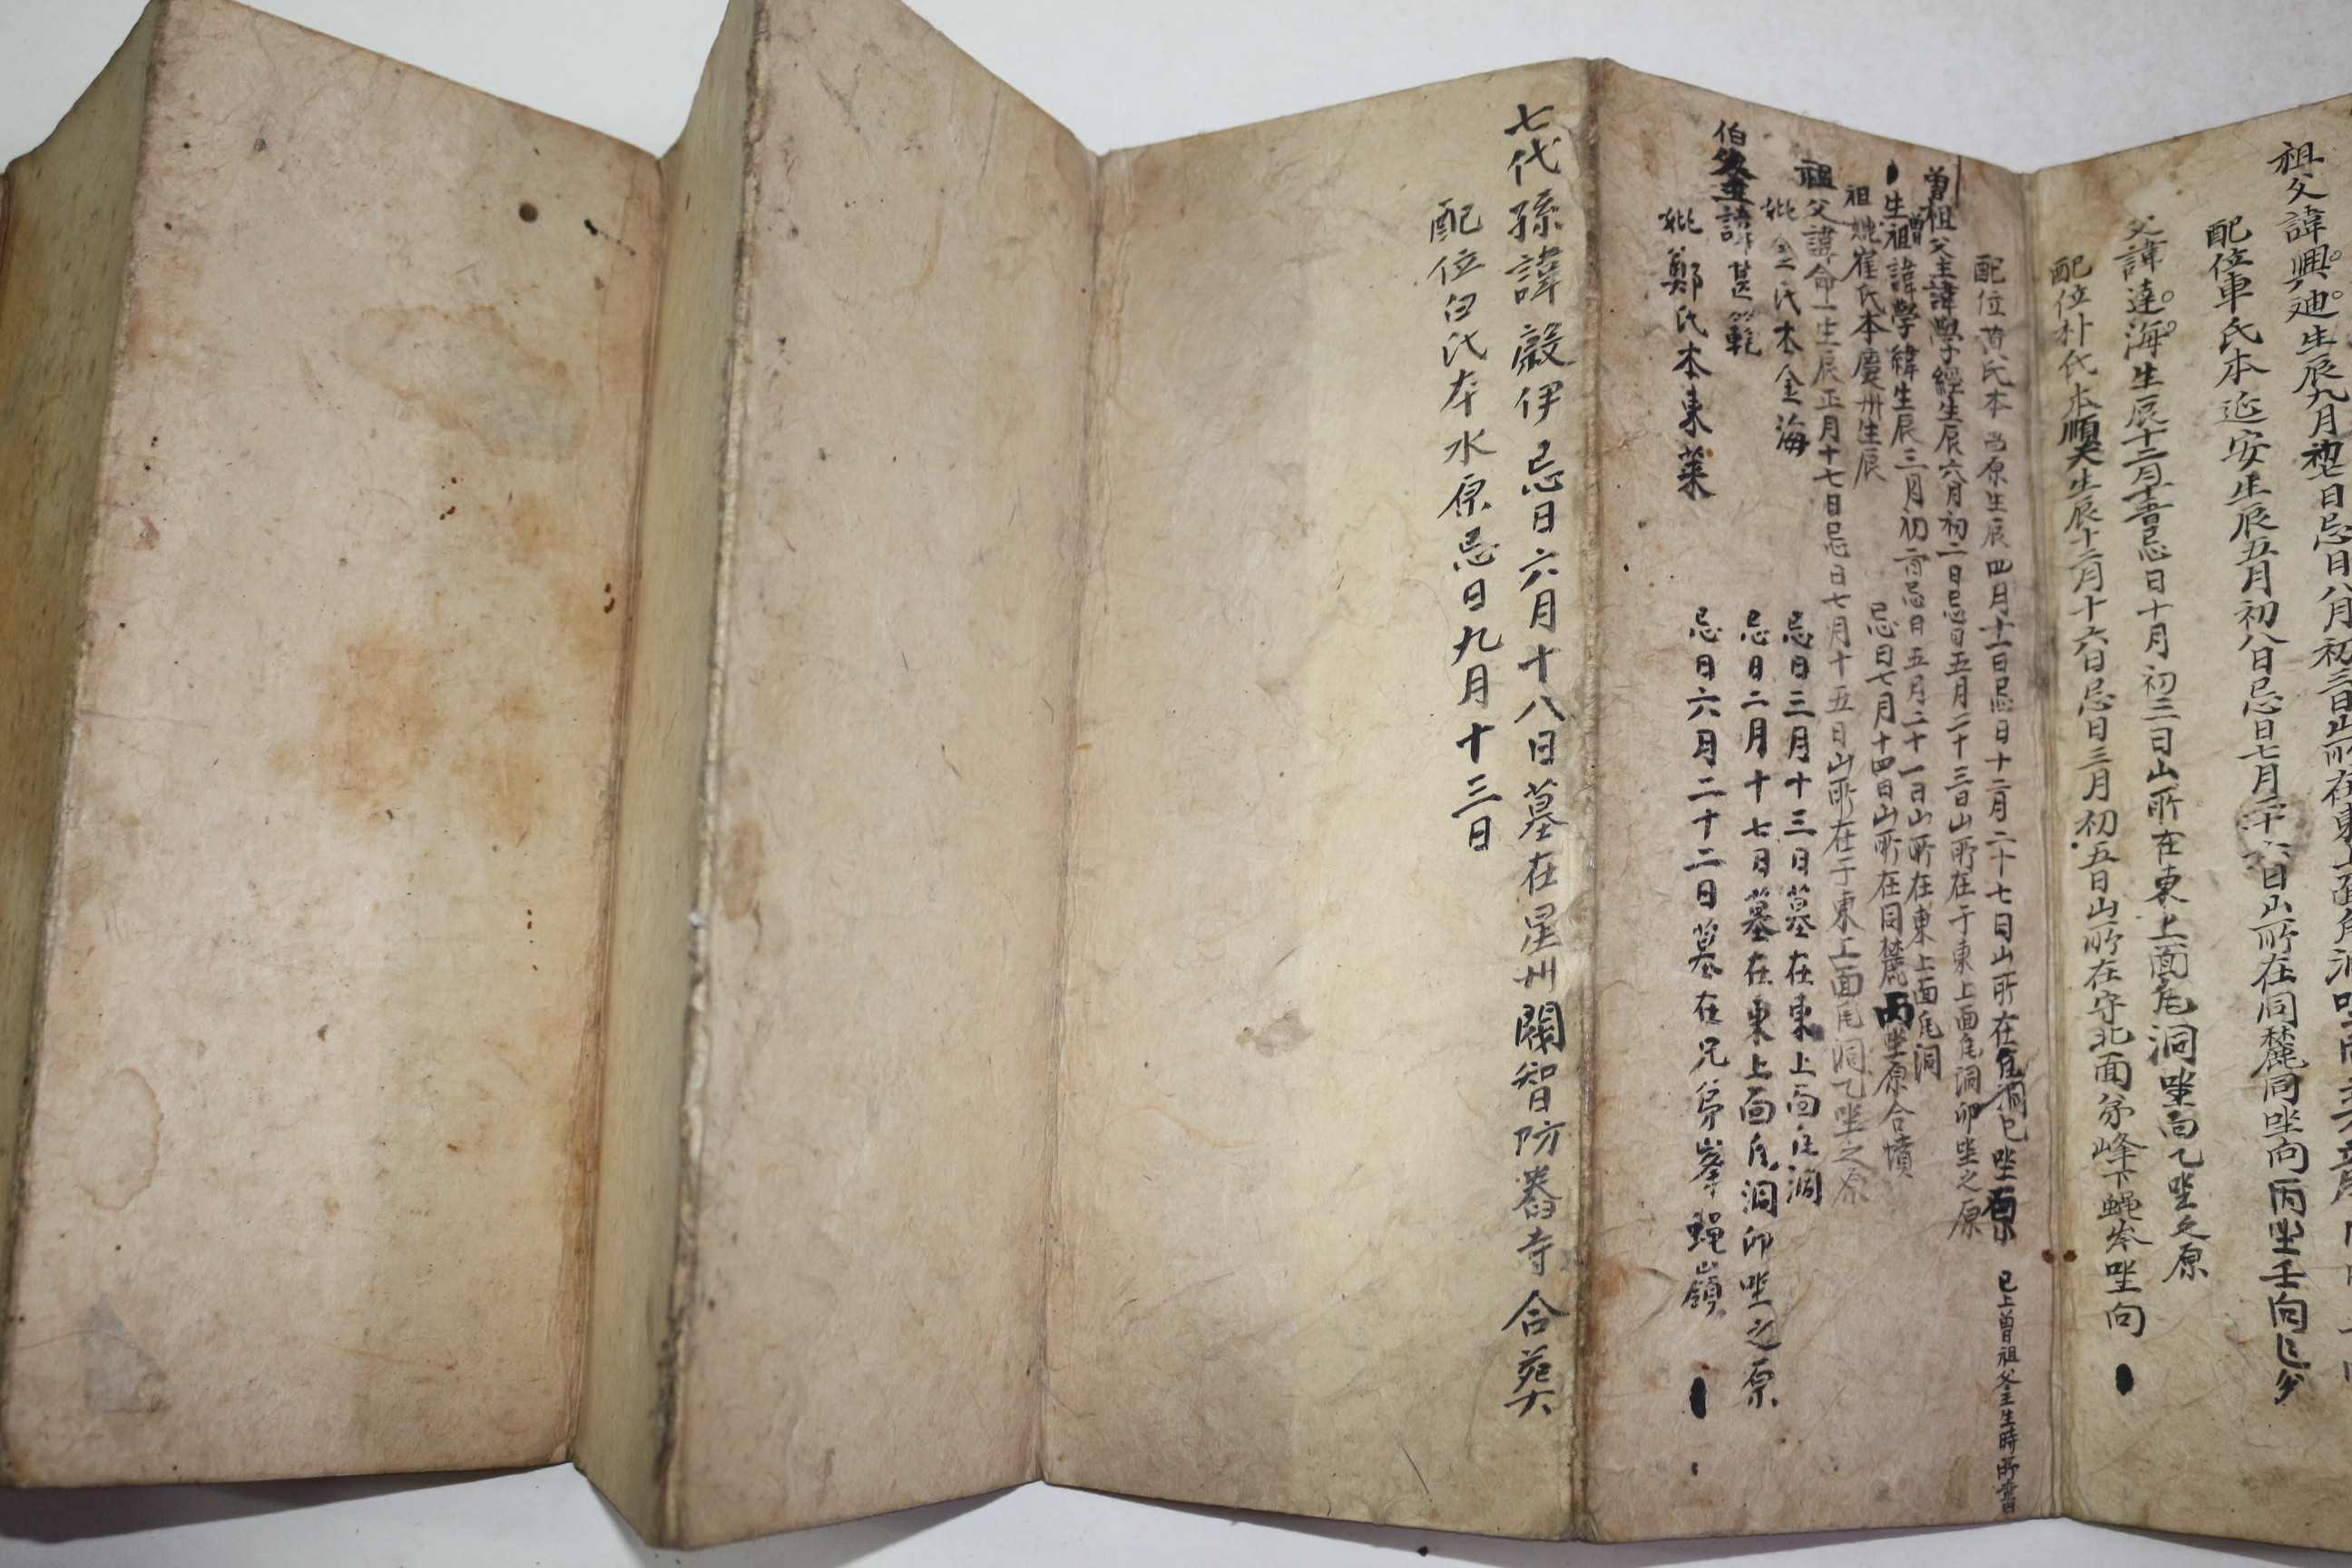 祖父諱興迪生辰九月初七日忌日八月初三日山所在東上面
配位車氏本延安生辰五月初八日忌日七月二十六日山所在同麓同坐向丙坐壬向
父諱達海生辰十二月忌日十月初三日山所在東上面瓦洞坐向乙坐之原
配位朴氏本順天生辰十二月十六日忌日三月初五日山所在守北面弟峰下蝿岑坐向
配位黃氏本 原生辰四月十一日忌日十二月二十七日山所在瓦洞巳坐原 已上曾祖父主生時所書
曾祖父主諱學經生辰六月初二日忌日五月二十三日山所在于東上面瓦洞卯坐之原
生曾祖諱學緯生辰三月初 忌日五月二十一日山所在東上面瓦洞
祖妣崔氏本慶州生辰 忌日七月十四日山所在同麓丙坐原合墳
祖父諱命一生辰正月十七日忌日七月十五日山所在于東上面瓦洞乙坐之原
妣金氏本金海 忌日三月十三日墓在東上面瓦洞
伯父主諱甚範 忌日二月十七日墓在東上面瓦洞卯坐之原
妣鄭氏本東萊 忌日六月二十二日墓在兄弟峯蝿嶺
七代孫諱穀伊忌日六月十八日墓在星州閣智防舊寺合葬
配位白氏本水原忌日九月十三日